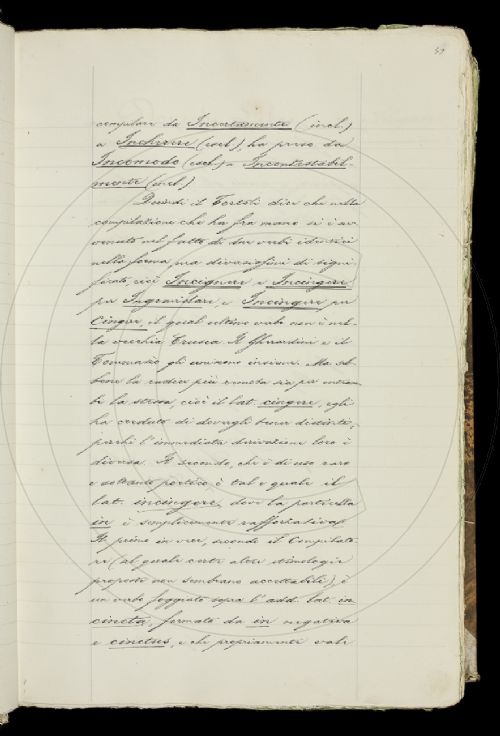 59
compilare da Incertamente (incl.)
a Inchiere (escl.), ha preso da
Incomodo (escl.) a Incontestabil-
mente (incl.)
Quindi il Tortoli dice che nella
compilazione che ha fra mano si è av
venuto nel fatto di due verbi identici
nella forma, ma diversissimi di signi
ficato, cioè Incignere e Incingere
per Ingravidare, e Incingere per
Cingere, il qual ultimo verbo non è nel-
la vecchia Crusca. Il Gherardini e il
Tommaseo gli uniscono insieme. Ma seb
bene la radice più remota sia per entram
bi la stessa, cioè il lat. cingere, egli
ha creduto di dovergli tener distinti,
perchè l'immediata derivazione loro è
diversa. Il secondo, che è di uso raro
e soltanto poetico è tal e quale il
lat. incingere, dove la particella
in è semplicemente rafforzativa.
Il primo in vece, secondo il Compilato
re (al quale certe altre etimologie
proposte non sembrano accettabili), è
un verbo foggiato sopra l'add. lat. in
cincta, formato da in negativa
e cinctus, e che propriamente vale